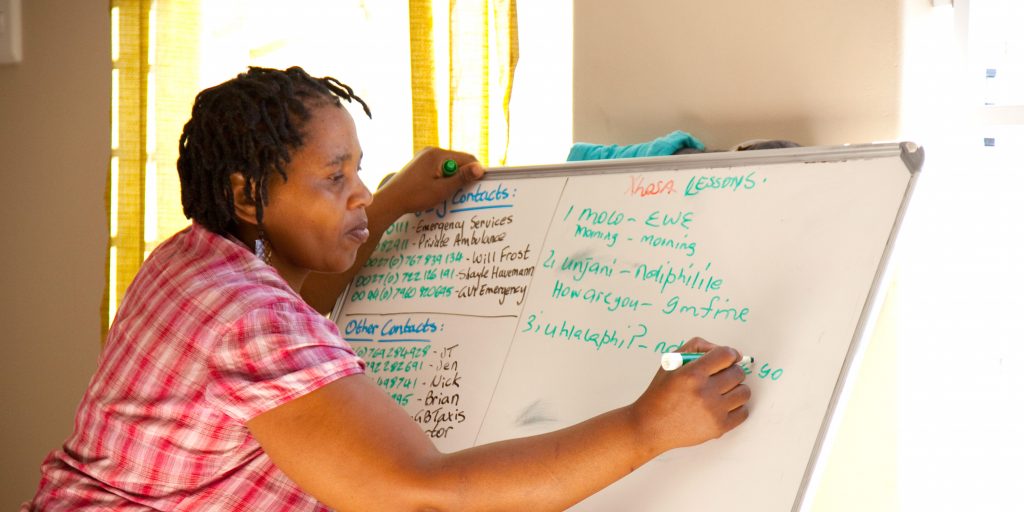 Contacts:
111 - Emergency Services
82911 - Private Ambulance
0027(0) 767 839 134 - Will Frost
0027(0) 722 126 191 - Shayle Havemann
0044(0) 7960 820645 - GVI Emergency
Other Contacts:
)764284928 - JT
792282691 - Jen
498741 - Nick
995 - Brian
GBTaxis
ctor
Xhosa LESSONS.
1 MOLO - EWE
Morning - morning
2. Unjani - ndiphilile
How are you - I'm fine
3. uhlalaphi? -
go